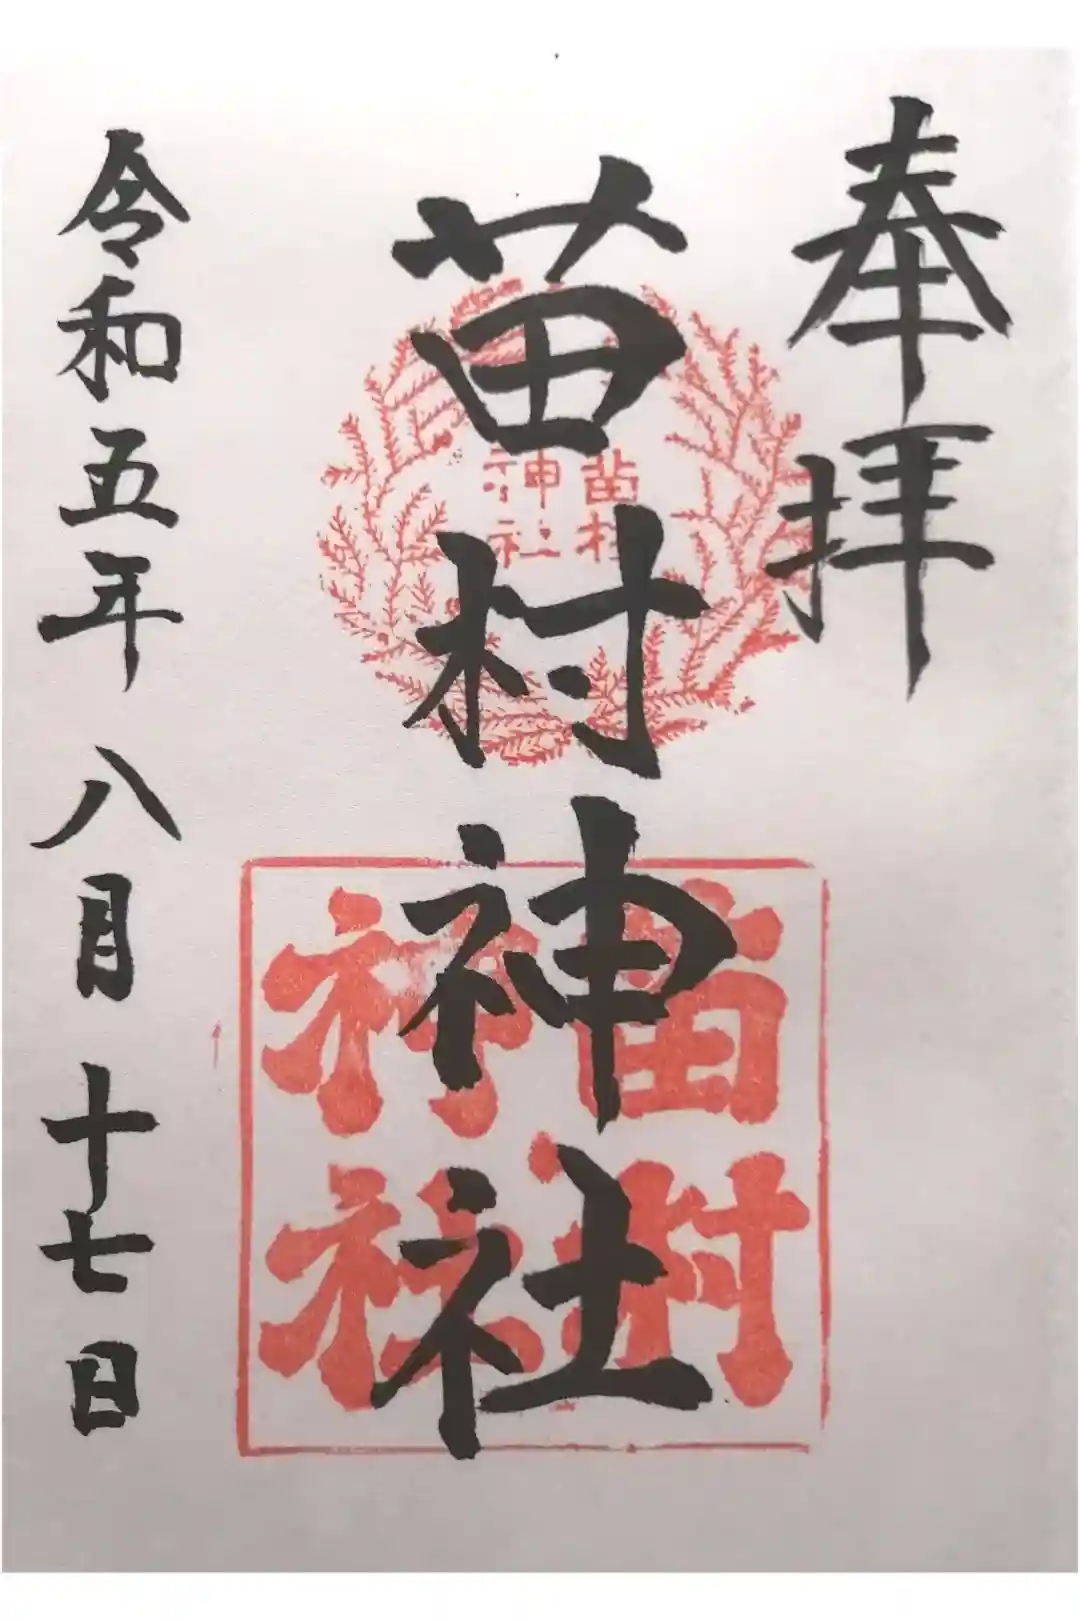 奉拝
苗村神社
苗村
神社
苗村
神社
令和五年八月十七日